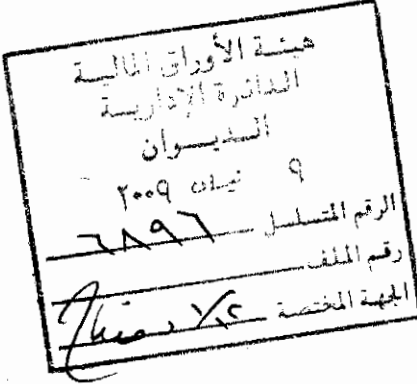 هيئة الأوراق المالية
الدائرة الإدارية
الديوان
٩ نيسان ٢٠٠٩
الرقم المتسلسل ٦٨٩٦
رقم الملف
الجهة المختصة